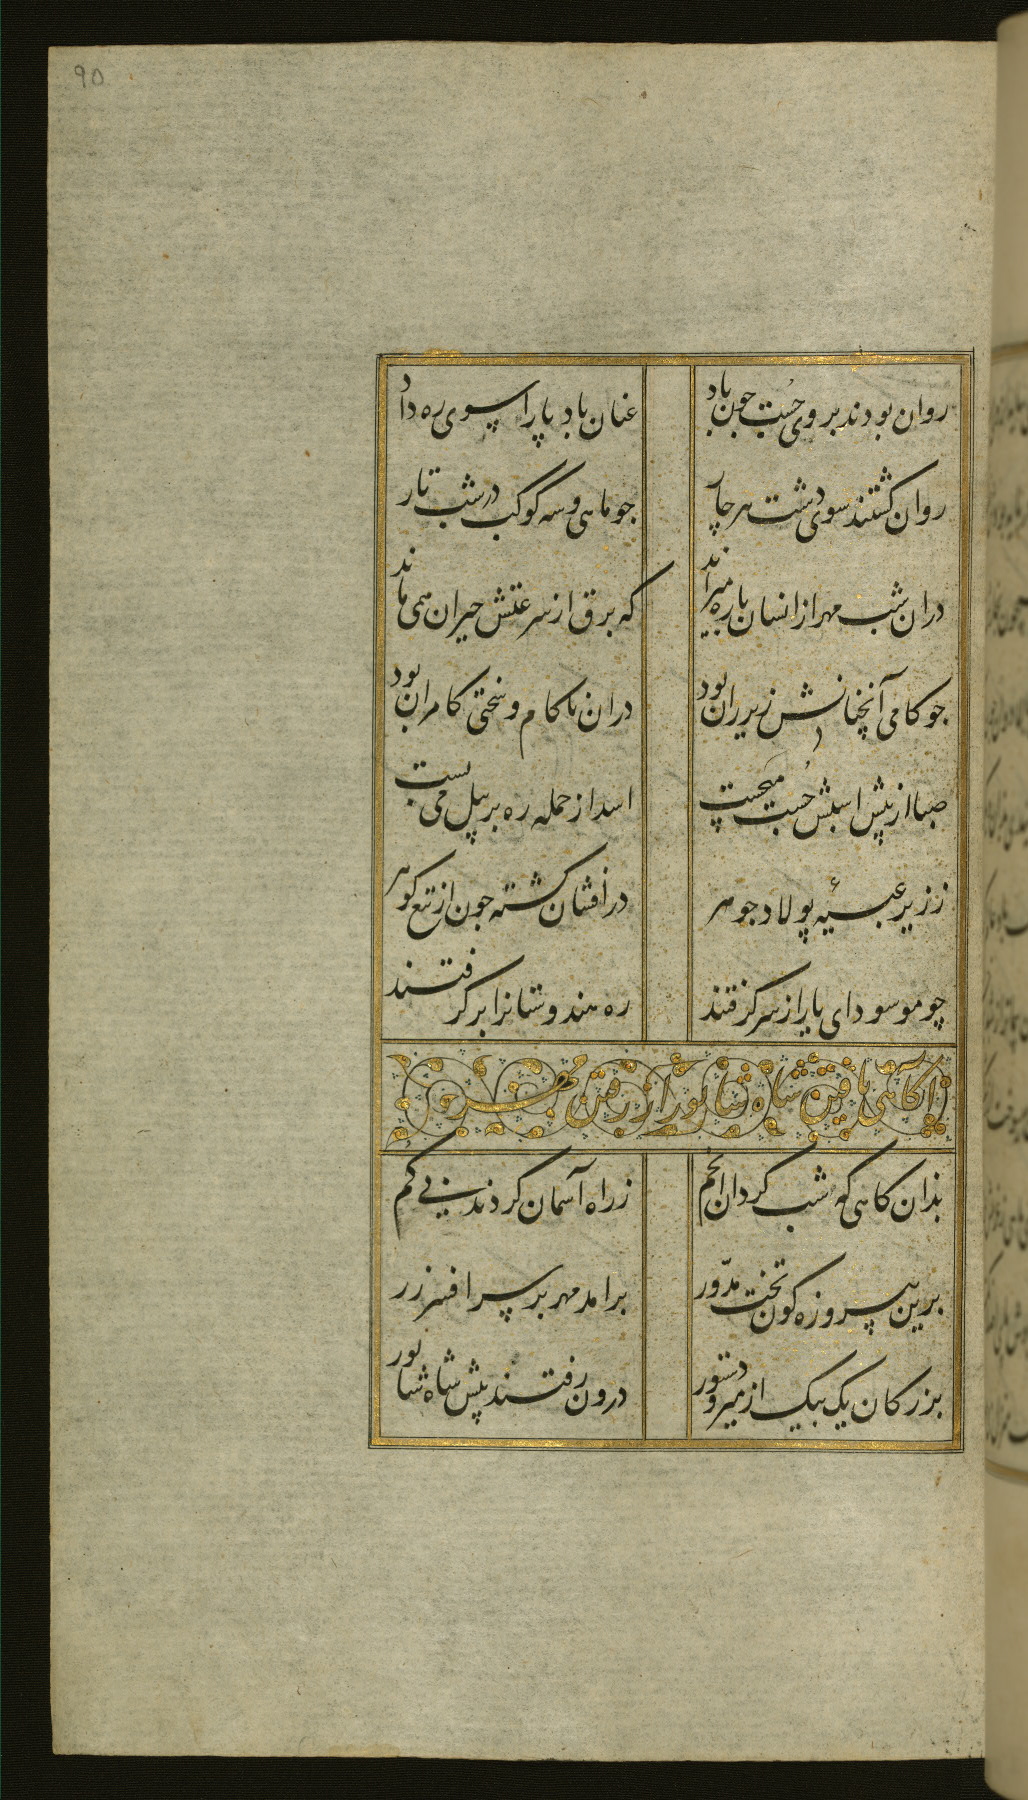 90
روان بودند بروی چست چون باد
عنان باد پا را سوی ره داد
روان کشتند سوی دشت هر چار
جو ماهی و سه کوکب در شب تار
دران شب مهر ازانسان باره میراند
که برق از سرعتش حیران همی ماند
جو کامی آنچنانش زیر ران بود
دران ناکام و سختی کامران بود
صبا از پیش اسبش چست میجست
اسد از حمله ره بر پیل می بست
ز زیر عیبه پولاد جوهر
درافشان کشته جون از تیغ کوهر
چو مو سودای یار از سر کرفتند
ره هندوستانرا بر کرفتند
آکاهی یافتن شاه شاپور از رفتن مهر
بذان کاهی که شب کردان انجم
ز راه آسمان کردند پی کم
برین پیروزه کون تخت مدور
برامد مهر بر سر افسر زر
بزرکان یک بیک از میر و دستور
درون رفتند پیش شاه شاپور